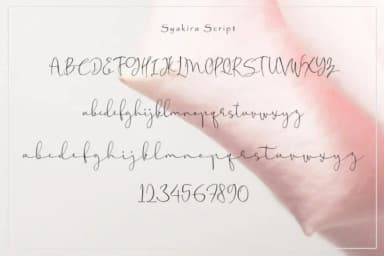 Syakira Script
ABCDEFGHIJKLMNOPQRSTUVWXYZ
abcdefghijklmnopqrstuvwxyz
abcdefghijklmnopqrstuvwxyz
1234567890